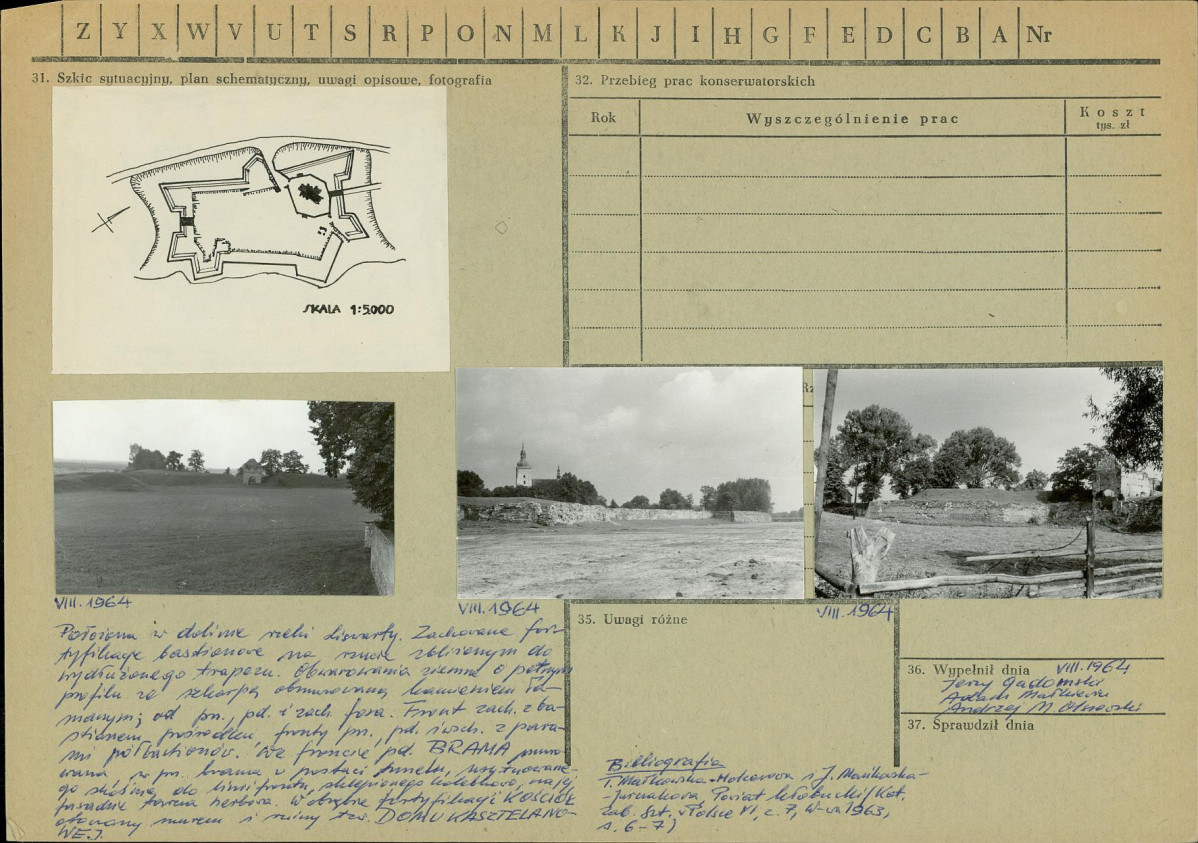 Z Y X W V U T S R P O N M L K J I H G F E D C B A Nr
31. Szkic sytuacyjny, plan schematyczny, uwagi opisowe, fotografia
SKALA 1:5000
VIII.1964
Położona w dolinie rzeki Liswarty. Zachowane for-
tyfikacje bastionowe na rzucie zbliżonym do
wydłużonego trapezu. Obwarowania ziemne o pełnym
profilu ze szkarpą obmurowaną kamieniem ła-
manym; od pn., pd. i zach. fosa. Front zach. z ba-
stionem pośrodku, fronty pn., pd. i wsch. z para-
mi półbastionów. We froncie pd. BRAMA muro-
wana, w pn. brama w postaci tunelu, usytuowane-
go skośnie do linii frontu, sklepionego kolebkowo, na jej
fasadzie tarcza herbowa. W obrębie fortyfikacji KOŚCIÓŁ
otoczony murem i ruiny tzw. DOMU KASZTELANO-
WEJ.
32. Przebieg prac konserwatorskich
Rok Wyszczególnienie prac Koszt
tys. zł
VIII.1964
VIII.1964
35. Uwagi różne
Bibliografia
J. Mańkowska-
Powiat kłobucki/Kat.
zab. szt. w Polsce VI, z. 7, W-wa 1963,
s. 6-7)
36. Wypełnił dnia VIII.1964
Jerzy Gadomski
Adam Małkiewicz
Andrzej M. Olszewski
37. Sprawdził dnia